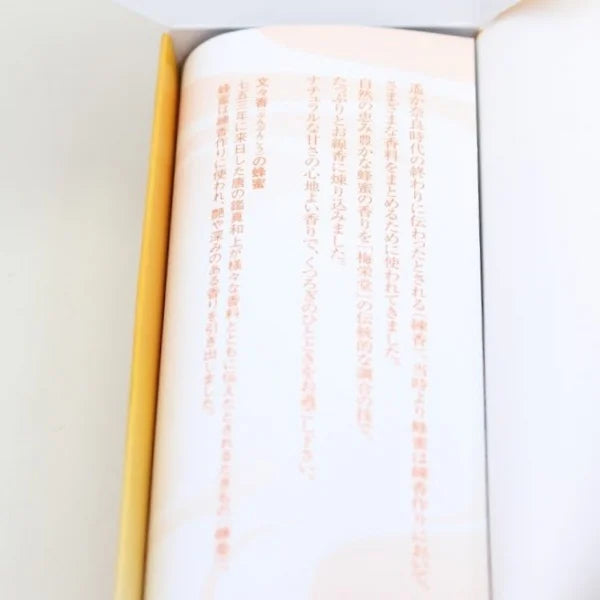 遥か奈良時代の終わりに伝わったとされる「練香」、当時より蜂蜜は練香作りにおいて、
さまざまな香料をまとめるために使われてきました。
自然の恵み豊かな蜂蜜の香りを「梅栄堂」の伝統的な調合の技で、
たっぷりとお線香に練り込みました。
ナチュラルな甘さの心地よい香りで、くつろぎのひとときをお過ごし下さい。
文々香(ぶんぶんこう)の蜂蜜
七五三年に来日した唐の鑑真和上が様々な香料とともに伝えたとされるたきもの「練香」。
蜂蜜は練香作りに使われ、艶や深みのある香りを引き出しました。